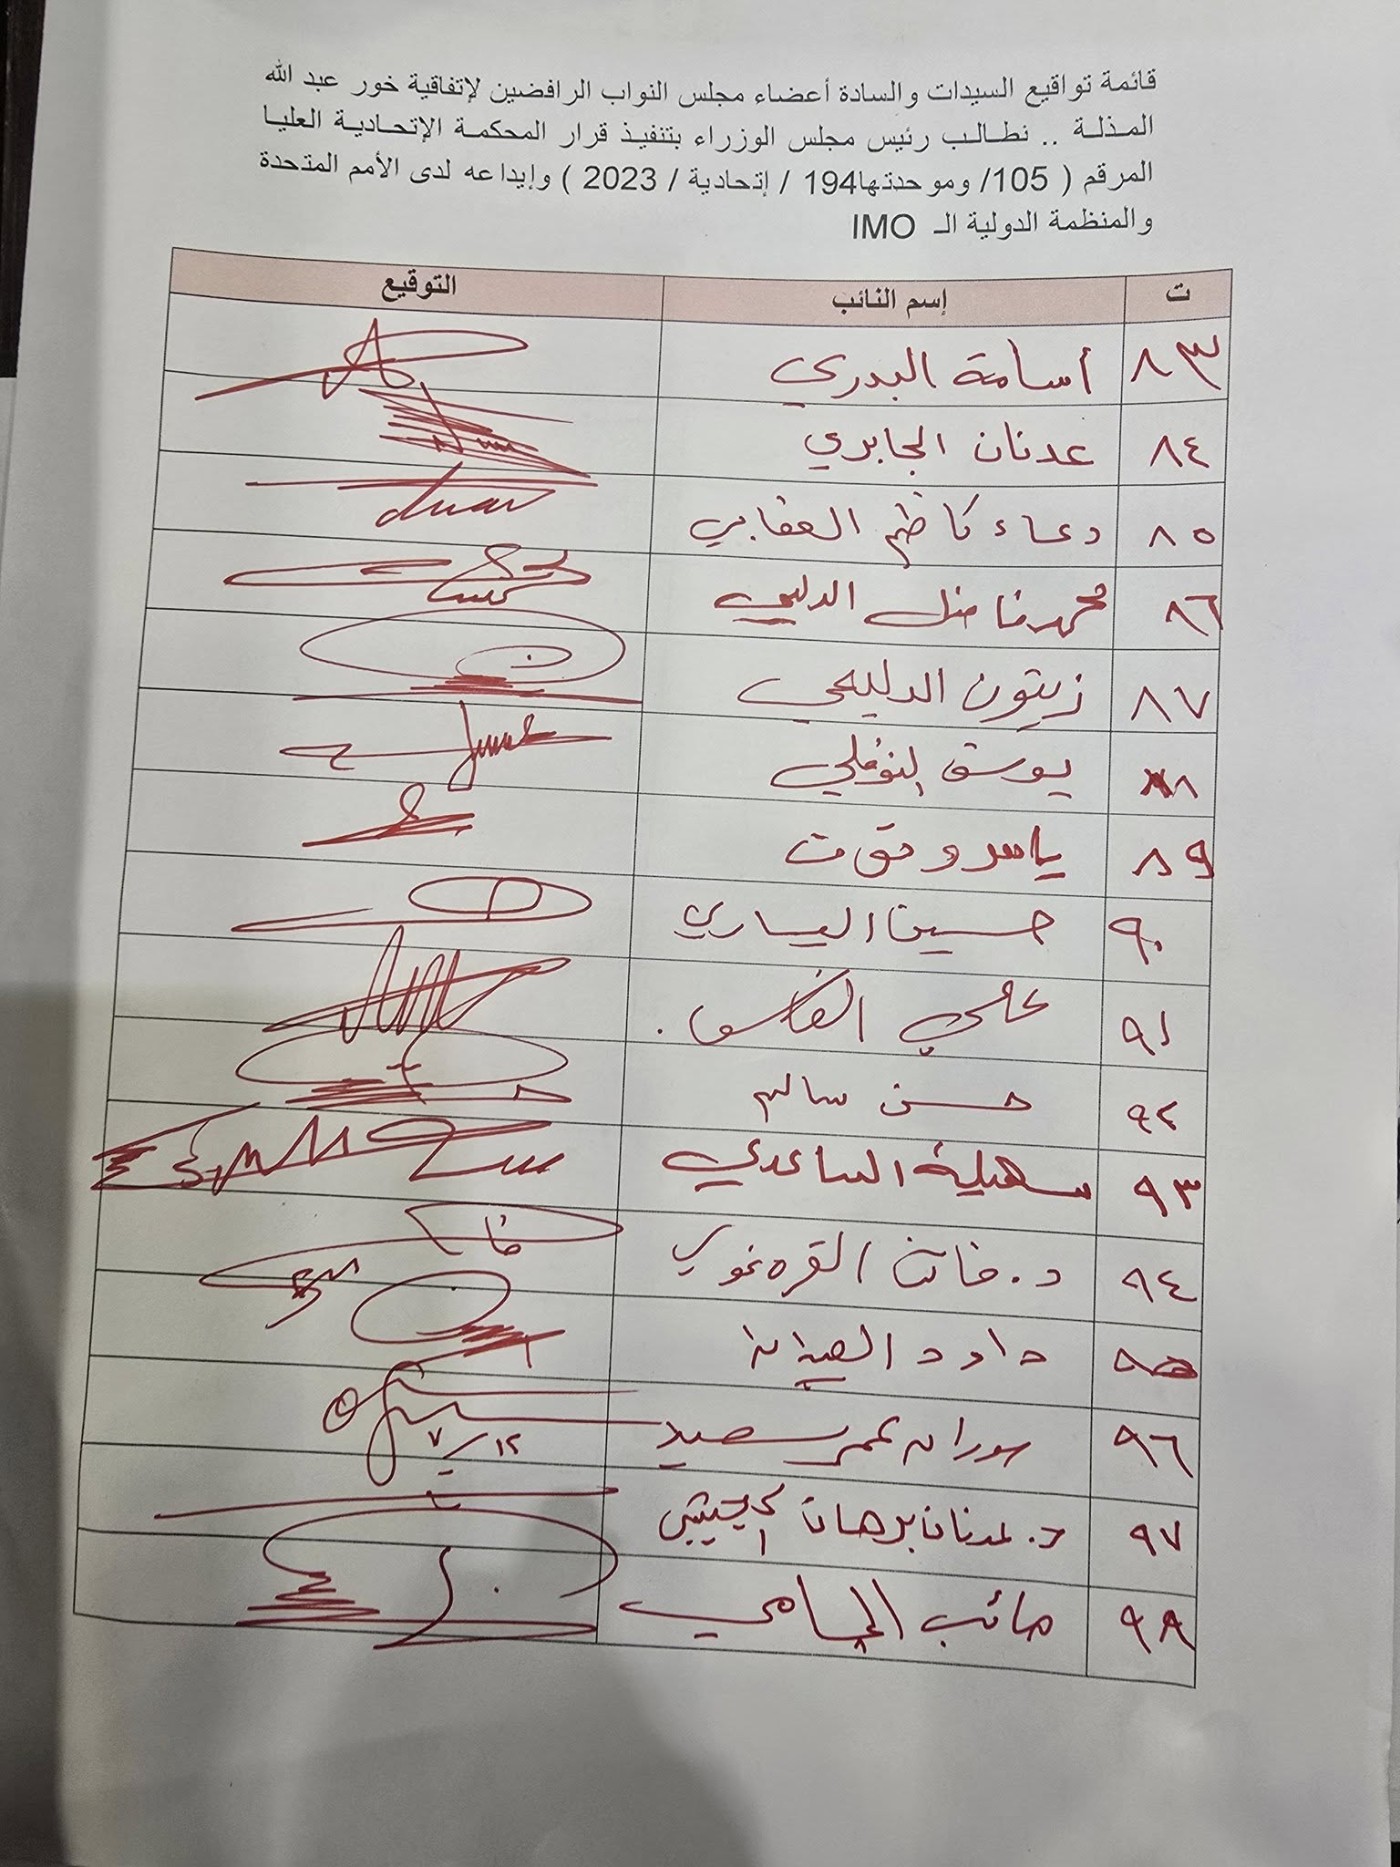 قائمة تواقيع السيدات والسادة أعضاء مجلس النواب الرافضين لإتفاقية خور عبد الله
المذلة .. نطالب رئيس مجلس الوزراء بتنفيذ قرار المحكمة الإتحادية العليا
المرقم ( 105/ وموحدتها194 / إتحادية / 2023 ) وإيداعه لدى الأمم المتحدة
والمنظمة الدولية الـ IMO
ت إسم النائب التوقيع
٨٣ أسامة البدري
٨٤ عدنان الجابري
٨٥ دعاء كاظم
٨٦ محمد فاضل الدليمي
٨٧ زيتون الدليمي
٨٨ يوسف النوفلي
٨٩ ياسر وتوت
٩٠ حسين اليساري
٩١ علي
٩٢ حسن سالم
٩٣ سهيلة الساعدي
٩٤ د. فاتن القره غولي
٩٥ داود العيدان
٩٦ سوران عمر سعيد ٧/١٢
٩٧ د. عدنان برهان الجحيشي
٩٨ صائب